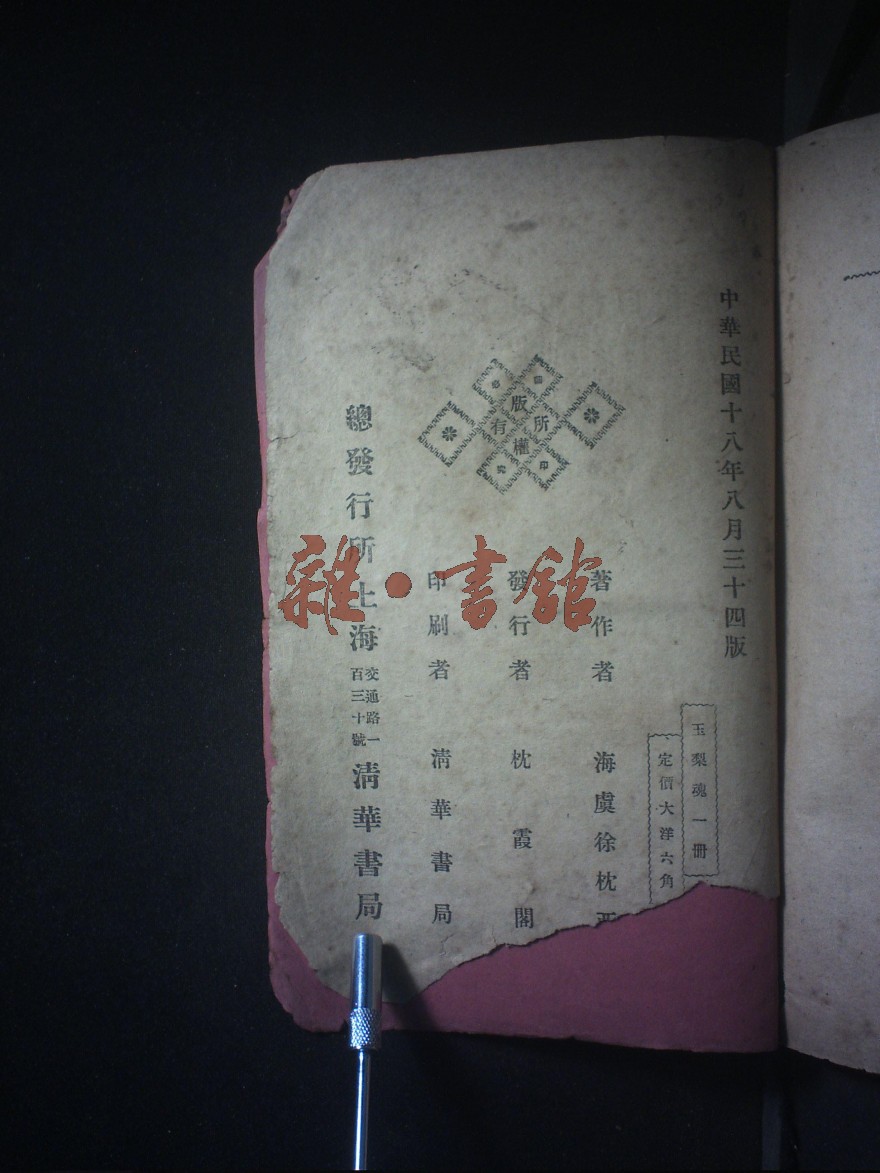 中華民國十八年八月三十四版
玉梨魂一冊
定價大洋六角
著作者 海虞徐枕
發行者 枕霞閣
印刷者 清華書局
版權所有
總發行所上海交通路一百三十號清華書局
雜·書館